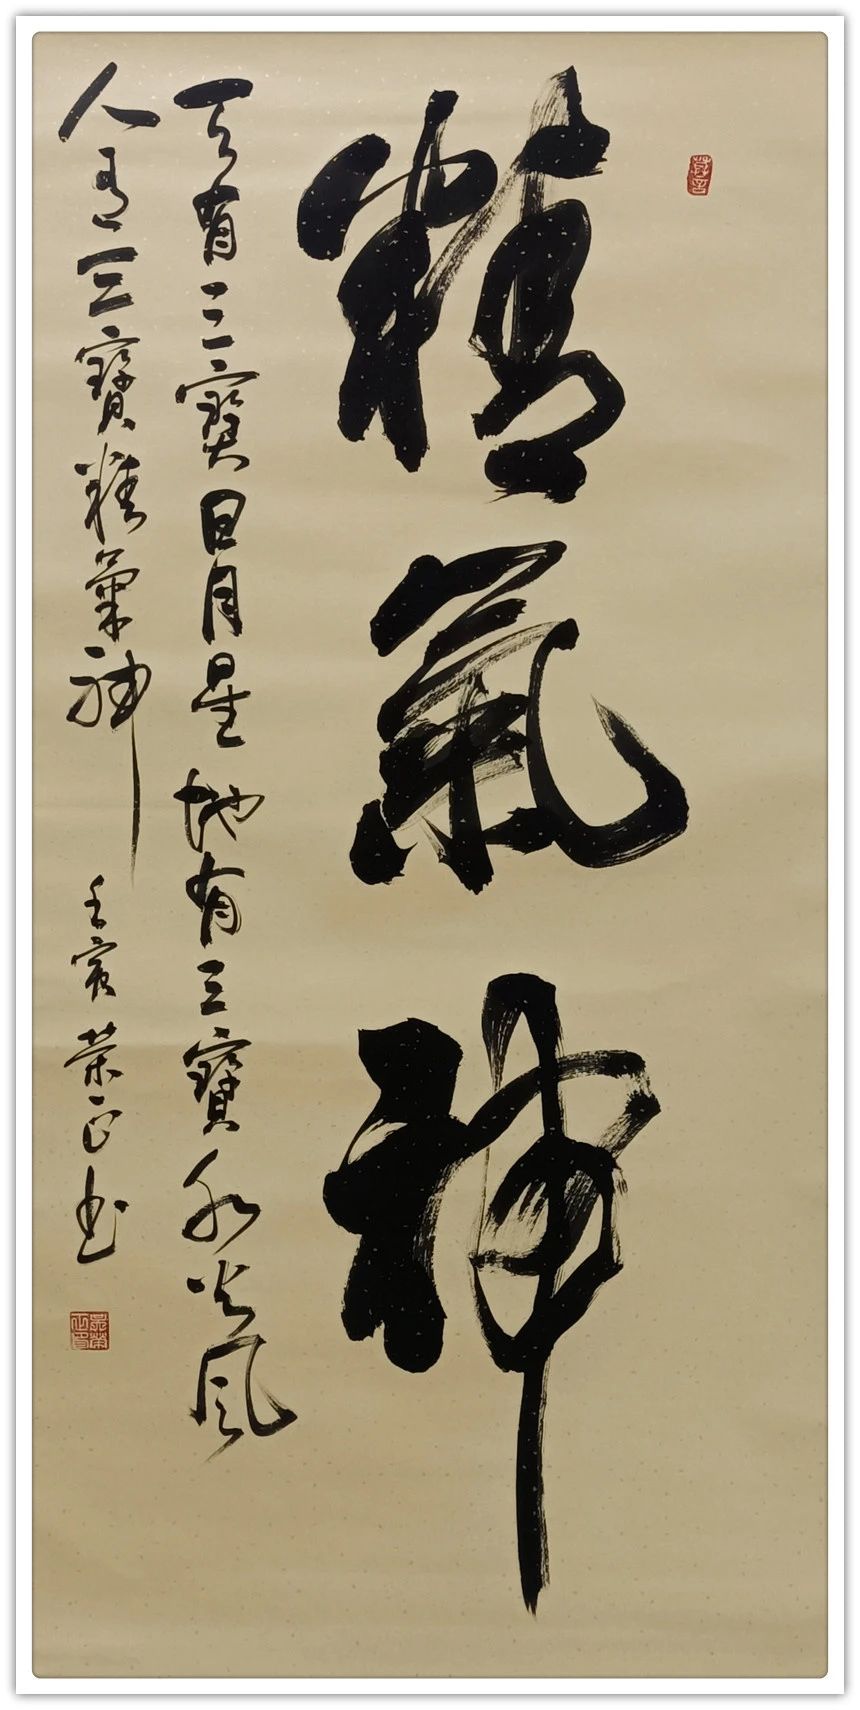 精氣神
天有三寶日月星地有三寶水火風
人有三寶精氣神
壬寅榮正书